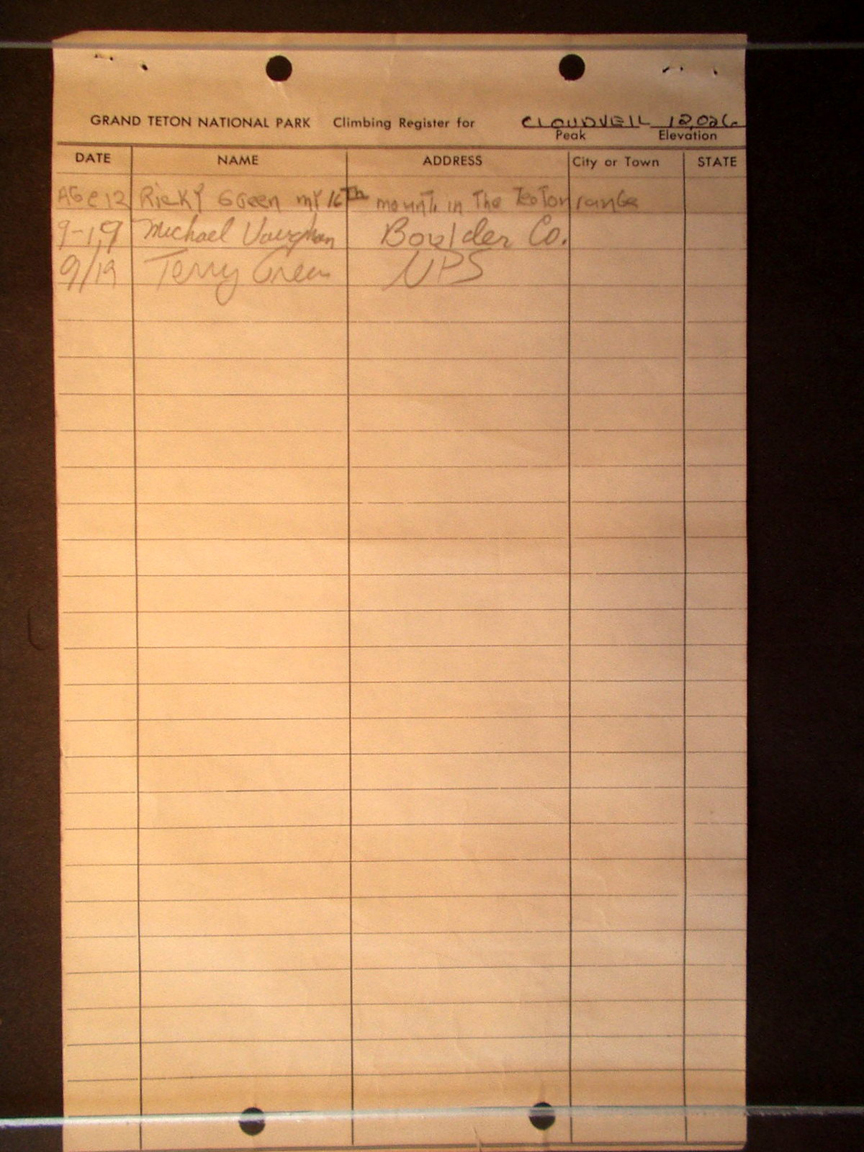 GRAND TETON NATIONAL PARK Climbing Register for CLOUDVEIL 12,026
Peak Elevation
DATE NAME ADDRESS City or Town STATE
AGE 12 Ricky Green my 16th mount. in The Teoton range
9-19 Michael Vaughan Boulder Co.
9/19 Terry Green NPS